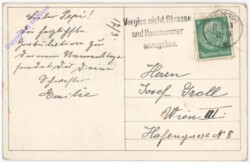 Lieber Pepi!
Die herzlichste
Gratulation zu
Deinem Namenstage
sendet Dir Deine
Schwester
Emilie
Vergiss nicht Strasse
und Hausnummer
anzugeben.
Herrn
Josef Groll
Wien III
Hafengasse № 8